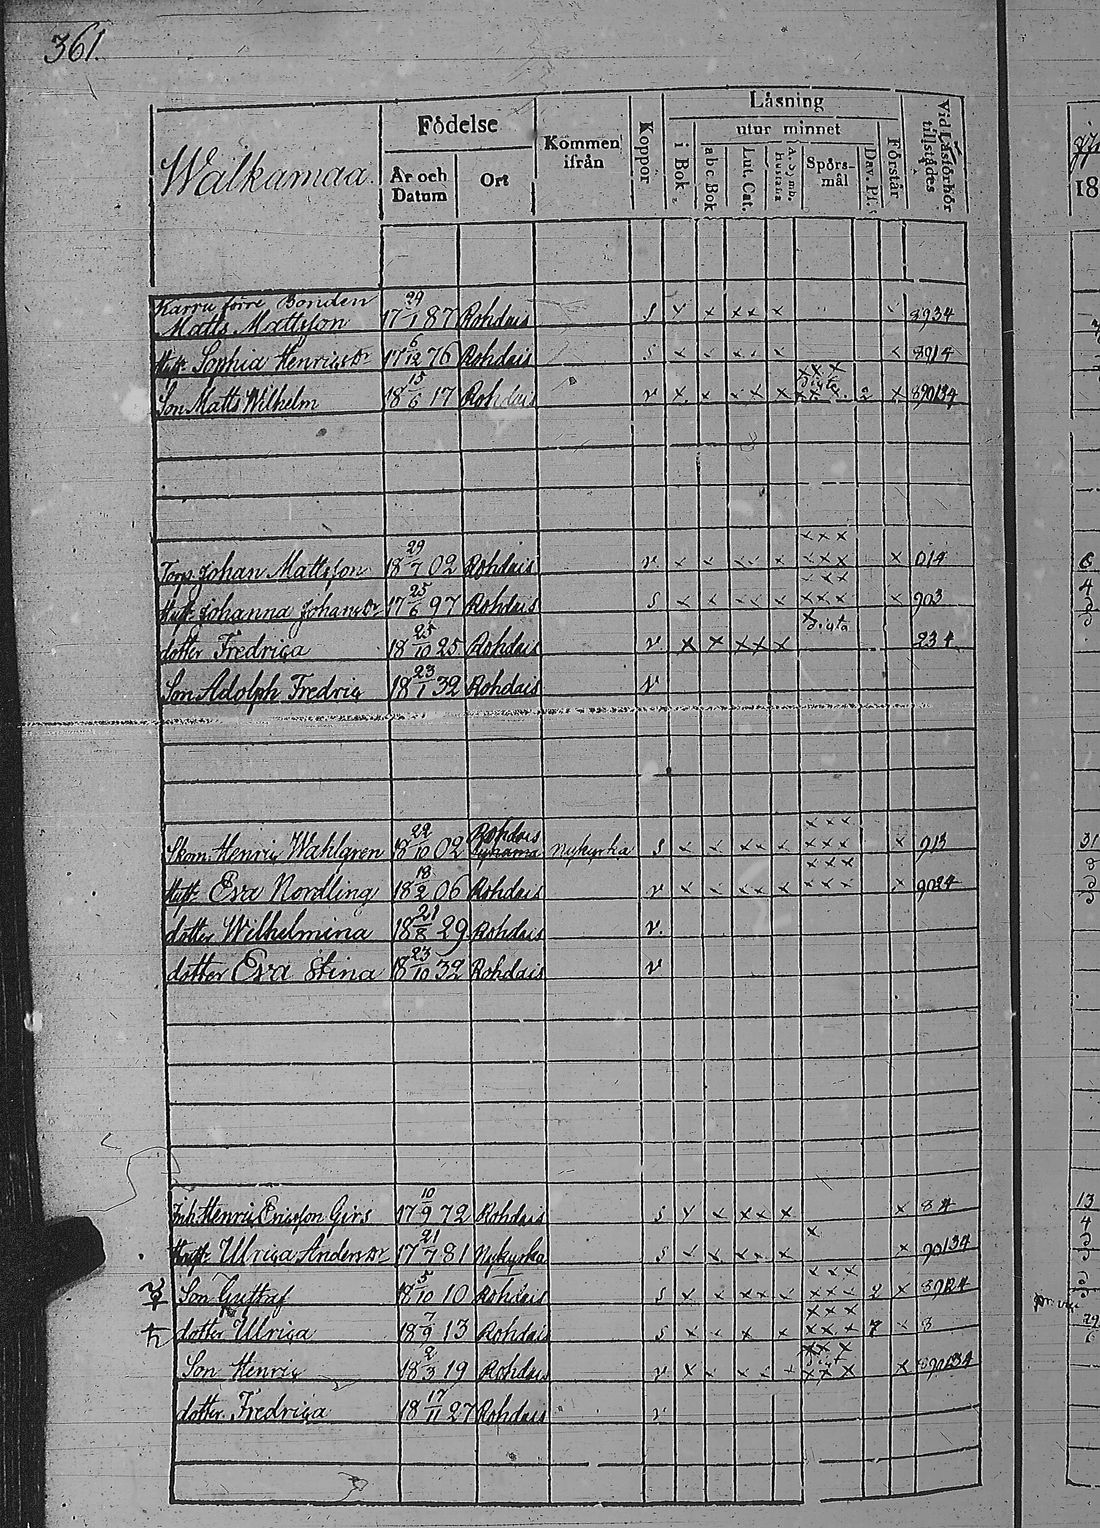 361.
Födelse
Läsning
utur minnet
Kommen ifrån
Koppor
i Bok
abc.Bok
Lut. Cat.
A. Symb. Hustafla
Spörs-mål
Dav. Ps.
Förstår
Vid Läsförhör tillstädes
Walkamaa.
År och Datum
Ort
Karru förre Bonden
Matts Mattsson 17 29/1 87 Rohdais s x x xx x 8934
Hust. Sophia Henricsdr 17 6/12 76 Rohdais s x x xx x x 8914
Son Matts Wilhelm 18 15/6 17 Rohdais v x x xx x xxx 2 x 890134
Torp. Johan Mattsson 18 29/7 02 Rohdais v x x xx x xxx x 014
Hust. Johanna Johansdr 17 25/6 97 Rohdais s x x xx x xxx x 903
dotter Fredrica 18 25/10 25 Rohdais v x x xx x 234
Son Adolph Fredric 18 23/1 32 Rohdais v
Rohdais
Skom. Henric Wahlgren 18 22/10 02 Nykyrka s x x xx x xxx x 913
Hust. Eva Nordling 18 18/2 06 Rohdais v x x xx x xxx x 9024
dotter Wilhelmina 18 21/8 29 Rohdais v.
dotter Eva Stina 18 23/10 32 Rohdais v
Inh. Henric Ericsson Girs 17 10/9 72 Rohdais s x x xx x x 84
Hust. Ulrica Andersdr 17 21/7 81 Nykyrka s x x xx x x 90134
Son Gustaf 18 5/10 10 Rohdais s x x xx x xxx 2 x
dotter Ulrica 18 7/9 13 Rohdais s x x x x xxx 7 x 3
Son Henric 18 2/3 19 Rohdais v x x x x x xxx x
dotter Fredrica 18 17/11 27 Rohdais v